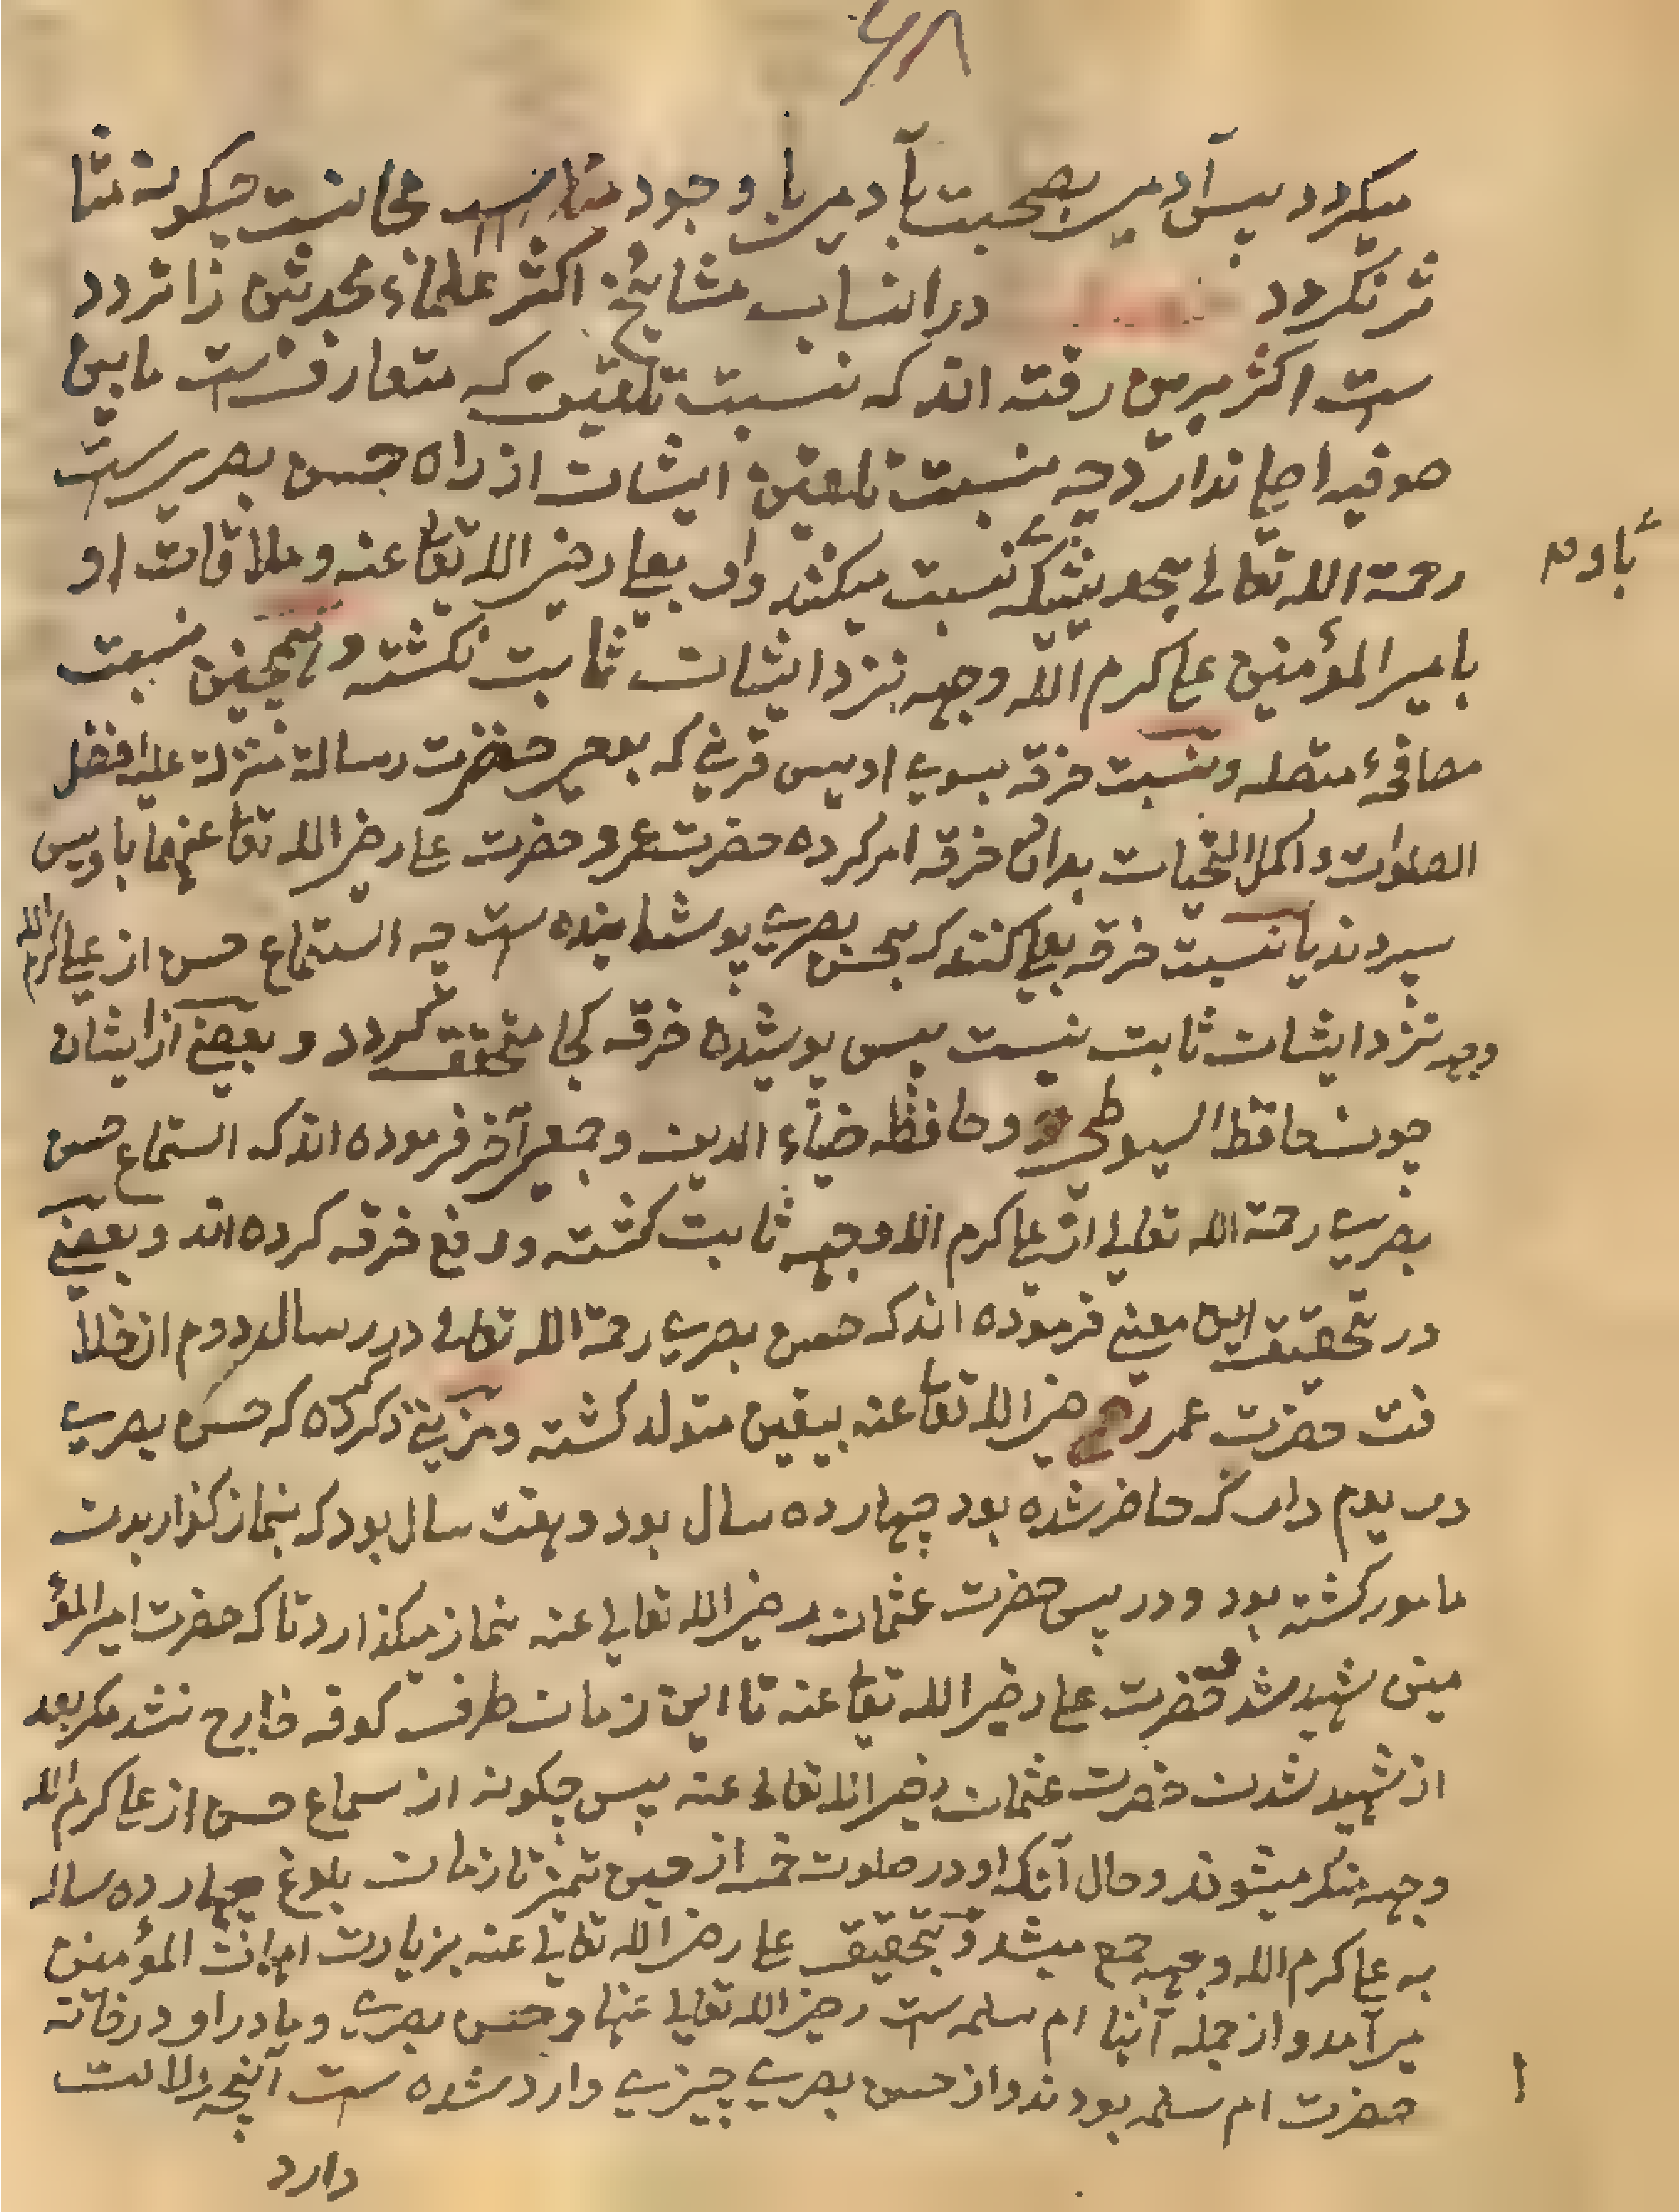 ۶۸
میکردد پس آدمی بصحبت با آدمی با وجود مجانست چکونه متا
ثر نکردد در انساب مشایخ اکثر علماء محدثین را تردد
ست اکثر برین رفته اند که نسبت تلقین که متعارفست ما بین
صوفیه اصلی ندارد چه نسبت تلقین ایشان از راه حسن بصریست
رحمة الله تعالی بحدیثیکه نسبت میکنند واو بعلی رضی الله تعا عنه وملاقات او
باوم
بامیر المؤمنین علی کرم الله وجهه نزد ایشان ثابت نکشته و همچنین نسبت
مصافحهٔ متصله ونسبت خرقه بسوی اویس قرنی که بعمر حضرت رسالة منزلة علیه افضل
الصلوات واکمل التحیات بدان خرقه امر کرده حضرت عمر و حضرت علی رضی الله تعا عنهما باویس
سپردند یا نسبت خرقه بعلی کنند که بحسن بصری پوشانیده ست چه استماع حسن از علی کرم الله
وجهه نزد ایشان ثابت نیست پس پوشیدن خرقه کجا متحقق کردد و بعضی از ایشان
چون حافظ السیوطی وحافظ ضیاء الدین وجمعی آخر فرموده اند که استماع حسن
بصری رحمة الله تعالی از علی کرم الله وجهه ثابت کشته ورفع خرقه کرده اند وبعضی
در تحقیق این معنی فرموده اند که حسن بصری رحمة الله تعالی در سال دوم از خلا
فت حضرت عمر رضی الله تعا عنه بیقین متولد کشته ومزنی ذکر کرده که حسن بصری
در یوم دار که حاضر شده بود چهارده سال بود وهفت سال بود که بنماز کذار بدن
مامور کشته بود ودر پس حضرت عثمان رضی الله تعالی عنه نماز میکذارد تا که حضرت امیر المؤ
منین شهید شد وحضرت علی رضی الله تعا عنه تا این زمان طرف کوفه خارج نشد مکر بعد
از شهید شدن حضرت عثمان رضی الله تعالی عنه پس چکونه از سماع حسن از علی کرم الله
وجهه منکر میشوند وحال آنکه او در صلوت خمس از حین تمیز تا زمان بلوغ چهارده ساله
به علی کرم الله وجهه جمع میشد وبتحقیق علی رضی الله تعالی عنه بزیارت امهات المؤمنین
می آمد و از جمله آنها ام سلمه ست رضی الله تعالی عنها وحسن بصری ومادر او در خانه
حضرت ام سلمه بودند واز حسن بصری چیزی وارد شده ست آنچه دلالت
دارد